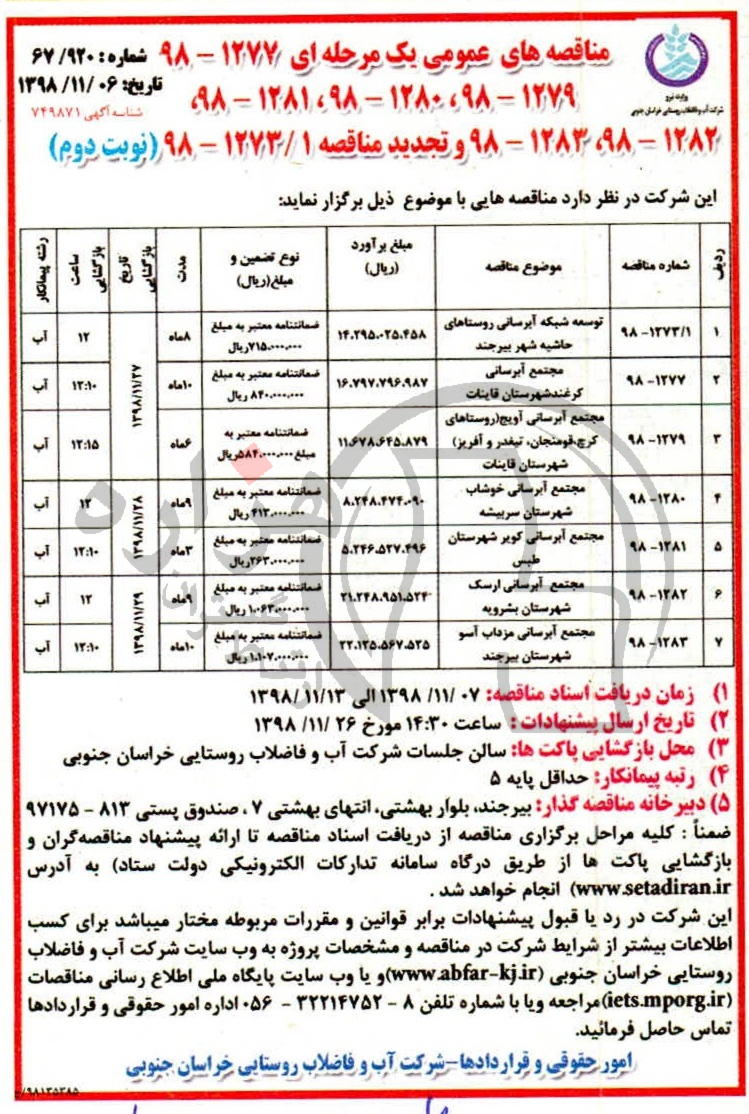 وزارت نیرو
شرکت آب و فاضلاب روستایی خراسان جنوبی
مناقصه های عمومی یک مرحله ای ۱۲۷۷ – ۹۸
۱۲۷۹ – ۹۸، ۱۲۸۰ – ۹۸، ۱۲۸۱ – ۹۸،
۱۲۸۲ – ۹۸، ۱۲۸۳ – ۹۸ و تجدید مناقصه ۱/ ۱۲۷۳ – ۹۸ (نوبت دوم)
شماره: ۶۷/۹۲۰
تاریخ: ۱۳۹۸/۱۱/۰۶
شناسه آگهی ۷۴۹۸۷۱
این شرکت در نظر دارد مناقصه هایی با موضوع ذیل برگزار نماید:
ردیف شماره مناقصه موضوع مناقصه مبلغ برآورد (ریال) نوع تضمین و مبلغ(ریال) مدت تاریخ بازگشایی ساعت بازگشایی رشته پیمانکار
۱ ۱۲۷۳/۱–۹۸ توسعه شبکه آبرسانی روستاهای حاشیه شهر بیرجند ۱۴.۲۹۵.۰۲۵.۴۵۸ ضمانتنامه معتبر به مبلغ ۷۱۵.۰۰۰.۰۰۰ریال ۸ماه ۱۳۹۸/۱۱/۲۷ ۱۲ آب
۲ ۱۲۷۷–۹۸ مجتمع آبرسانی کرغندشهرستان قاینات ۱۶.۷۹۷.۷۹۶.۹۸۷ ضمانتنامه معتبر به مبلغ ۸۴۰.۰۰۰.۰۰۰ ریال ۱۰ماه ۱۲:۱۰ آب
۳ ۱۲۷۹–۹۸ مجتمع آبرسانی آویج(روستاهای کرج،قومنجان، تیغدر و آفریز) شهرستان قاینات ۱۱.۶۷۸.۶۴۵.۸۷۹ ضمانتنامه معتبر به مبلغ ۵۸۴.۰۰۰.۰۰۰ریال ۶ماه ۱۲:۱۵ آب
۴ ۱۲۸۰–۹۸ مجتمع آبرسانی خوشاب شهرستان سربیشه ۸.۲۴۸.۴۷۴.۰۹۰ ضمانتنامه معتبر به مبلغ ۴۱۳.۰۰۰.۰۰۰ ریال ۹ماه ۱۳۹۸/۱۱/۲۸ ۱۲ آب
۵ ۱۲۸۱–۹۸ مجتمع آبرسانی کویر شهرستان طبس ۵.۲۴۶.۵۲۷.۴۹۶ ضمانتنامه معتبر به مبلغ ۲۶۳.۰۰۰.۰۰۰ریال ۳ماه ۱۲:۱۰ آب
۶ ۱۲۸۲–۹۸ مجتمع آبرسانی ارسک شهرستان بشرویه ۲۱.۲۴۸.۹۵۱.۵۲۴ ضمانتنامه معتبر به مبلغ ۱.۰۶۳.۰۰۰.۰۰۰ ریال ۹ماه ۱۳۹۸/۱۱/۲۹ ۱۲ آب
۷ ۱۲۸۳–۹۸ مجتمع آبرسانی مزداب آسو شهرستان بیرجند ۲۲.۱۲۵.۵۶۷.۵۲۵ ضمانتنامه معتبر به مبلغ ۱.۱۰۷.۰۰۰.۰۰۰ ریال ۱۰ماه ۱۲:۱۰ آب
۱) زمان دریافت اسناد مناقصه: ۰۷ /۱۱/ ۱۳۹۸ الی ۱۳۹۸/۱۱/۱۳
۲) تاریخ ارسال پیشنهادات : ساعت ۱۴:۳۰ مورخ ۲۶ /۱۱/ ۱۳۹۸
۳) محل بازگشایی پاکت ها: سالن جلسات شرکت آب و فاضلاب روستایی خراسان جنوبی
۴) رتبه پیمانکار: حداقل پایه ۵
۵) دبیر خانه مناقصه گذار: بیرجند، بلوار بهشتی، انتهای بهشتی ۷ ، صندوق پستی ۸۱۳ – ۹۷۱۷۵
ضمناً : کلیه مراحل برگزاری مناقصه از دریافت اسناد مناقصه تا ارائه پیشنهاد مناقصه‌گران و
بازگشایی پاکت ها از طریق درگاه سامانه تدارکات الکترونیکی دولت ستاد) به آدرس
www.setadiran.ir) انجام خواهد شد .
این شرکت در رد یا قبول پیشنهادات برابر قوانین و مقررات مربوطه مختار میباشد برای کسب
اطلاعات بیشتر از شرایط شرکت در مناقصه و مشخصات پروژه به وب سایت شرکت آب و فاضلاب
روستایی خراسان جنوبی (www.abfar-kj.ir)و یا وب سایت پایگاه ملی اطلاع رسانی مناقصات
(iets.mporg.ir)مراجعه ویا با شماره تلفن ۸ – ۳۲۲۱۴۷۵۲ – ۰۵۶ اداره امور حقوقی و قراردادها
تماس حاصل فرمائید.
امور حقوقی و قراردادها–شرکت آب و فاضلاب روستایی خراسان جنوبی
۹۸۱۲۵۲۸۵/م
هزاره